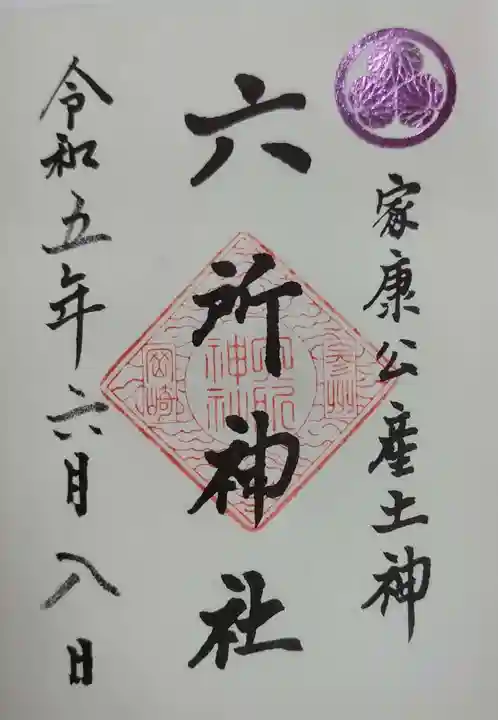 家康公産土神
六所神社
参州
六所
神社
岡崎
令和五年六月八日